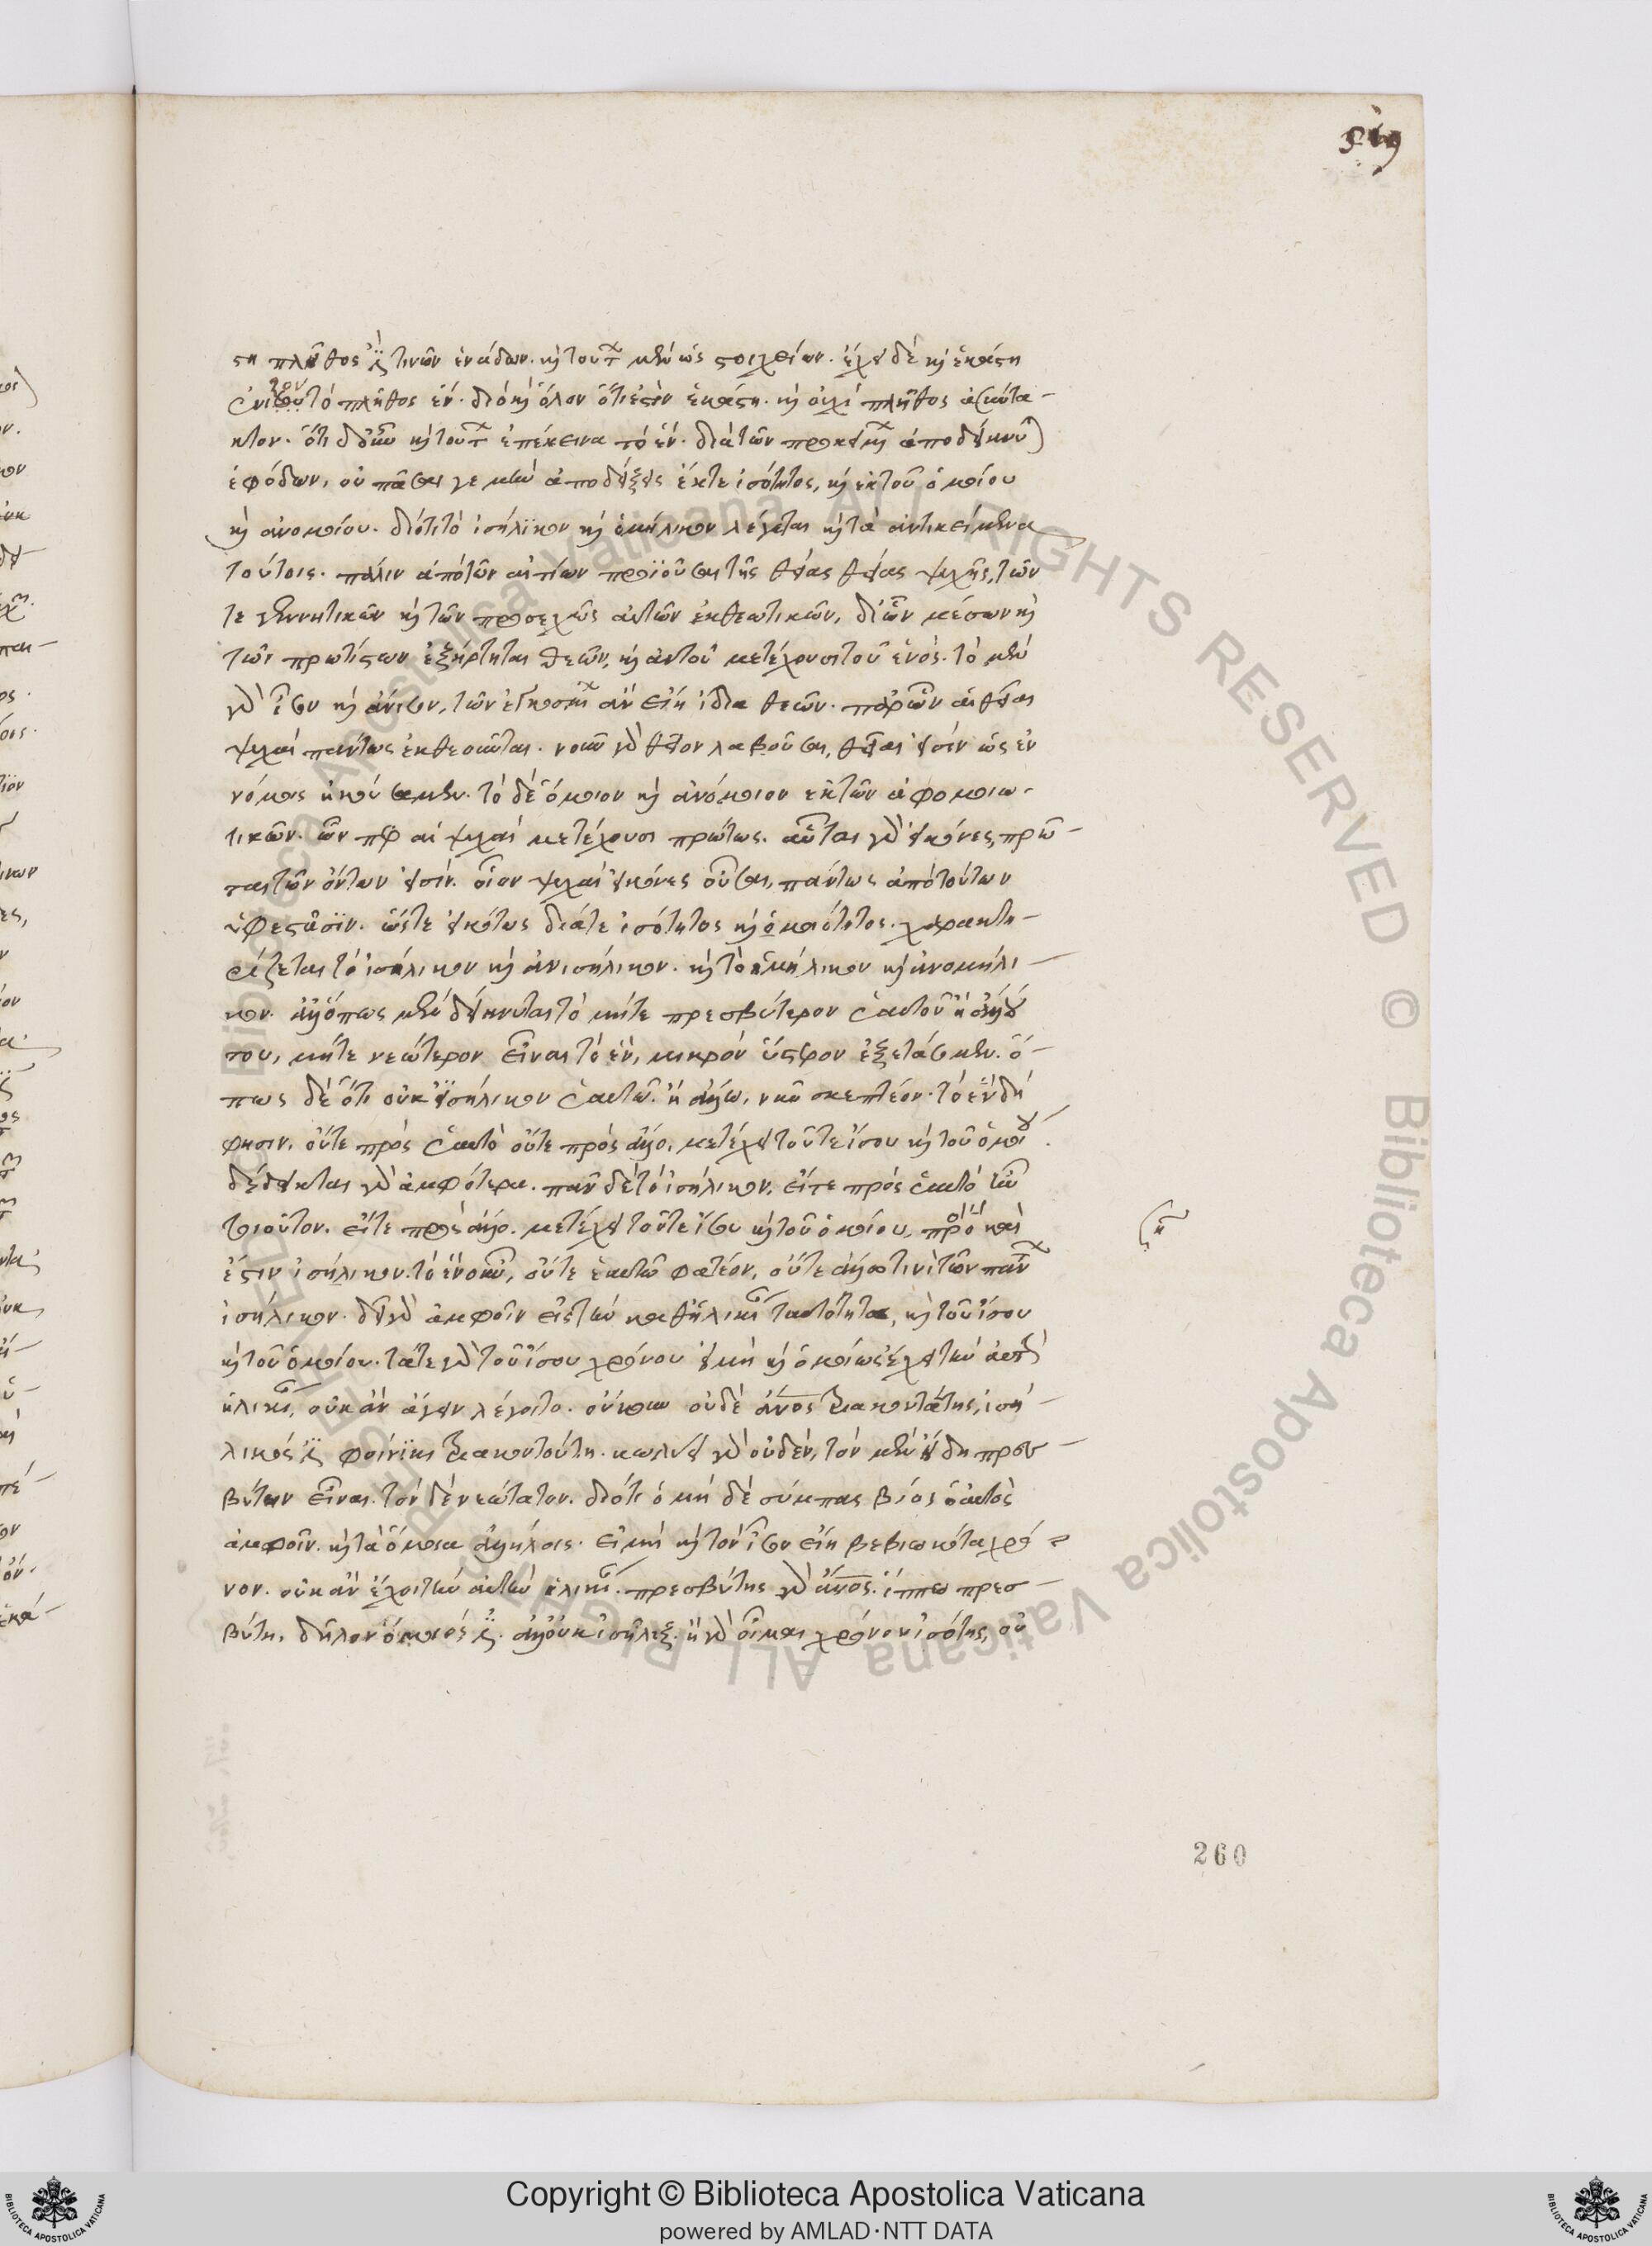 στη πλῆθος ἐστί τινῶν ἑνάδων. καὶ τούτων μὲν ὡς στοιχείων. ἔχει δὲ καὶ ἑκάστη
τὸ πλῆθος ἕν. διὸ καὶ ὅλον ὅτι ἐστὶν ἑκάστη. καὶ οὐχὶ πλῆθος ἀσύντα-
κτον. ὅτι καὶ τούτων ἐπέκεινα τὸ ἕν. διὰ τῶν προκειμένων ἀποδείκνυται
ἐφόδων. οὐ πᾶσαι γε μὴν ἀποδείξεις ἔκ τε ἰσότητος, καὶ ἐκ τοῦ ὁμοίου
καὶ ἀνομοίου. διότι τὸ ἰσήλικον καὶ ὁμήλικον λέγεται καὶ τὰ ἀντικείμενα
τούτοις. πάλιν ἀπὸ τῶν αἰτίων προϊοῦσαι τῆς θείας θείας ψυχῆς, τῶν
τε γεννητικῶν καὶ τῶν προσεχῶς αὐτῶν ἐκθεωτικῶν, δι' ὧν μέσων καὶ
τῶν πρωτίστων ἐξήρτηται θεῶν, καὶ αὐτοῦ μετέχουσι τοῦ ἑνός. τὸ μὲν
γὰρ ἴσον καὶ ἄνισον, τῶν ἐγκοσμίων ἂν εἴη ἴδια θεῶν. παρ' ὧν αἱ θεῖαι
ψυχαὶ πάντως ἐκθεοῦνται. νοῦν γὰρ θεῖον λαβοῦσαι, θεῖαι εἰσὶν ὡς ἐν
νόμοις ἠκούσαμεν. τὸ δὲ ὅμοιον καὶ ἀνόμοιον ἐκ τῶν ἀφομοιω-
τικῶν. ὧν περ αἱ ψυχαὶ μετέχουσι πρώτως. αὗται γὰρ εἰκόνες πρῶ-
ται τῶν ὄντων εἰσίν. οἷον ψυχαὶ εἰκόνες οὖσαι, πάντως ἀπὸ τούτων
ὑφεστᾶσϊν. ὥστε εἰκότως διά τε ἰσότητος καὶ ὁμοιότητος. χαρακτη-
ρίζεται τὸ ἰσήλικον καὶ ἀνισήλικον. καὶ τὸ ὁμήλικον καὶ ἀνομήλι-
κον. ἀλλ' ὅπως μὲν δείκνυται τὸ μήτε πρεσβύτερον ἑαυτοῦ ἢ ἄλλου
του, μήτε νεώτερον εἶναι τὸ ἕν, μικρὸν ὕστερον ἐξετάσομεν. ὅ-
πως δὲ ὅτι οὐκ ἰσήλικον ἑαυτῷ ἢ ἄλλῳ, νῦν σκεπτέον. τὸ ἓν δή
φησιν, οὔτε πρὸς ἑαυτὸ οὔτε πρὸς ἄλλο, μετέχει τοῦ τε ἴσου καὶ τοῦ ὁμοίου.
δέδεικται γὰρ ἀμφότερα. πᾶν δὲ τὸ ἰσήλικον, εἴτε πρὸς ἑαυτὸ εἴη
τοιοῦτον. εἴτε πρὸς ἄλλο. μετέχει τοῦ τε ἴσου καὶ τοῦ ὁμοίου, πρὸς ὃ καὶ
ἔστιν ἰσήλικον. τὸ ἓν οὖν, οὔτε ἑαυτῷ φατέον, οὔτε ἄλλῳ τινὶ τῶν πάντων
ἰσήλικον. δεῖ γὰρ ἀμφοῖν εἰς τὴν καθ' ἡλικίαν ταυτότητα, καὶ τοῦ ἴσου
καὶ τοῦ ὁμοίου. τά τε γὰρ τοῦ ἴσου χρόνου εἰ μὴ καὶ ὁμοίως ἔχει τὴν αὐτὴν
ἡλικίαν, οὐκ ἂν ἄγειν λέγοιτο. οὔκουν οὐδὲ ἄνος τριακοντάτης, ἰσή-
λικός ἐστι φοίνϊκι τριακοντούτῃ. κωλύει γὰρ οὐδὲν, τὸν μὲν ἤδη πρεσ-
βύτην εἶναι. τὸν δὲ νεώτατον. διότι ὁ μὴ δὲ σύμπας βίος ὁ αὐτὸς
ἀμφοῖν. καὶ τὰ ὅμοια ἀλλήλοις. εἰ μὴ καὶ τὸν ἴσον εἴη βεβιωκότα χρό-
νον. οὐκ ἂν ἔχοι τὴν αὐτὴν ἡλικίαν. πρεσβύτης γὰρ ἄνος. ἵππῳ πρεσ-
βύτῃ, δῆλον ὅμοιός ἐστι. ἀλλ' οὐκ ἰσῆλιξ. ἡ γὰρ οἶμαι χρόνον ἰσότης, οὐ
260
Copyright © Biblioteca Apostolica Vaticana
powered by AMLAD·NTT DATA